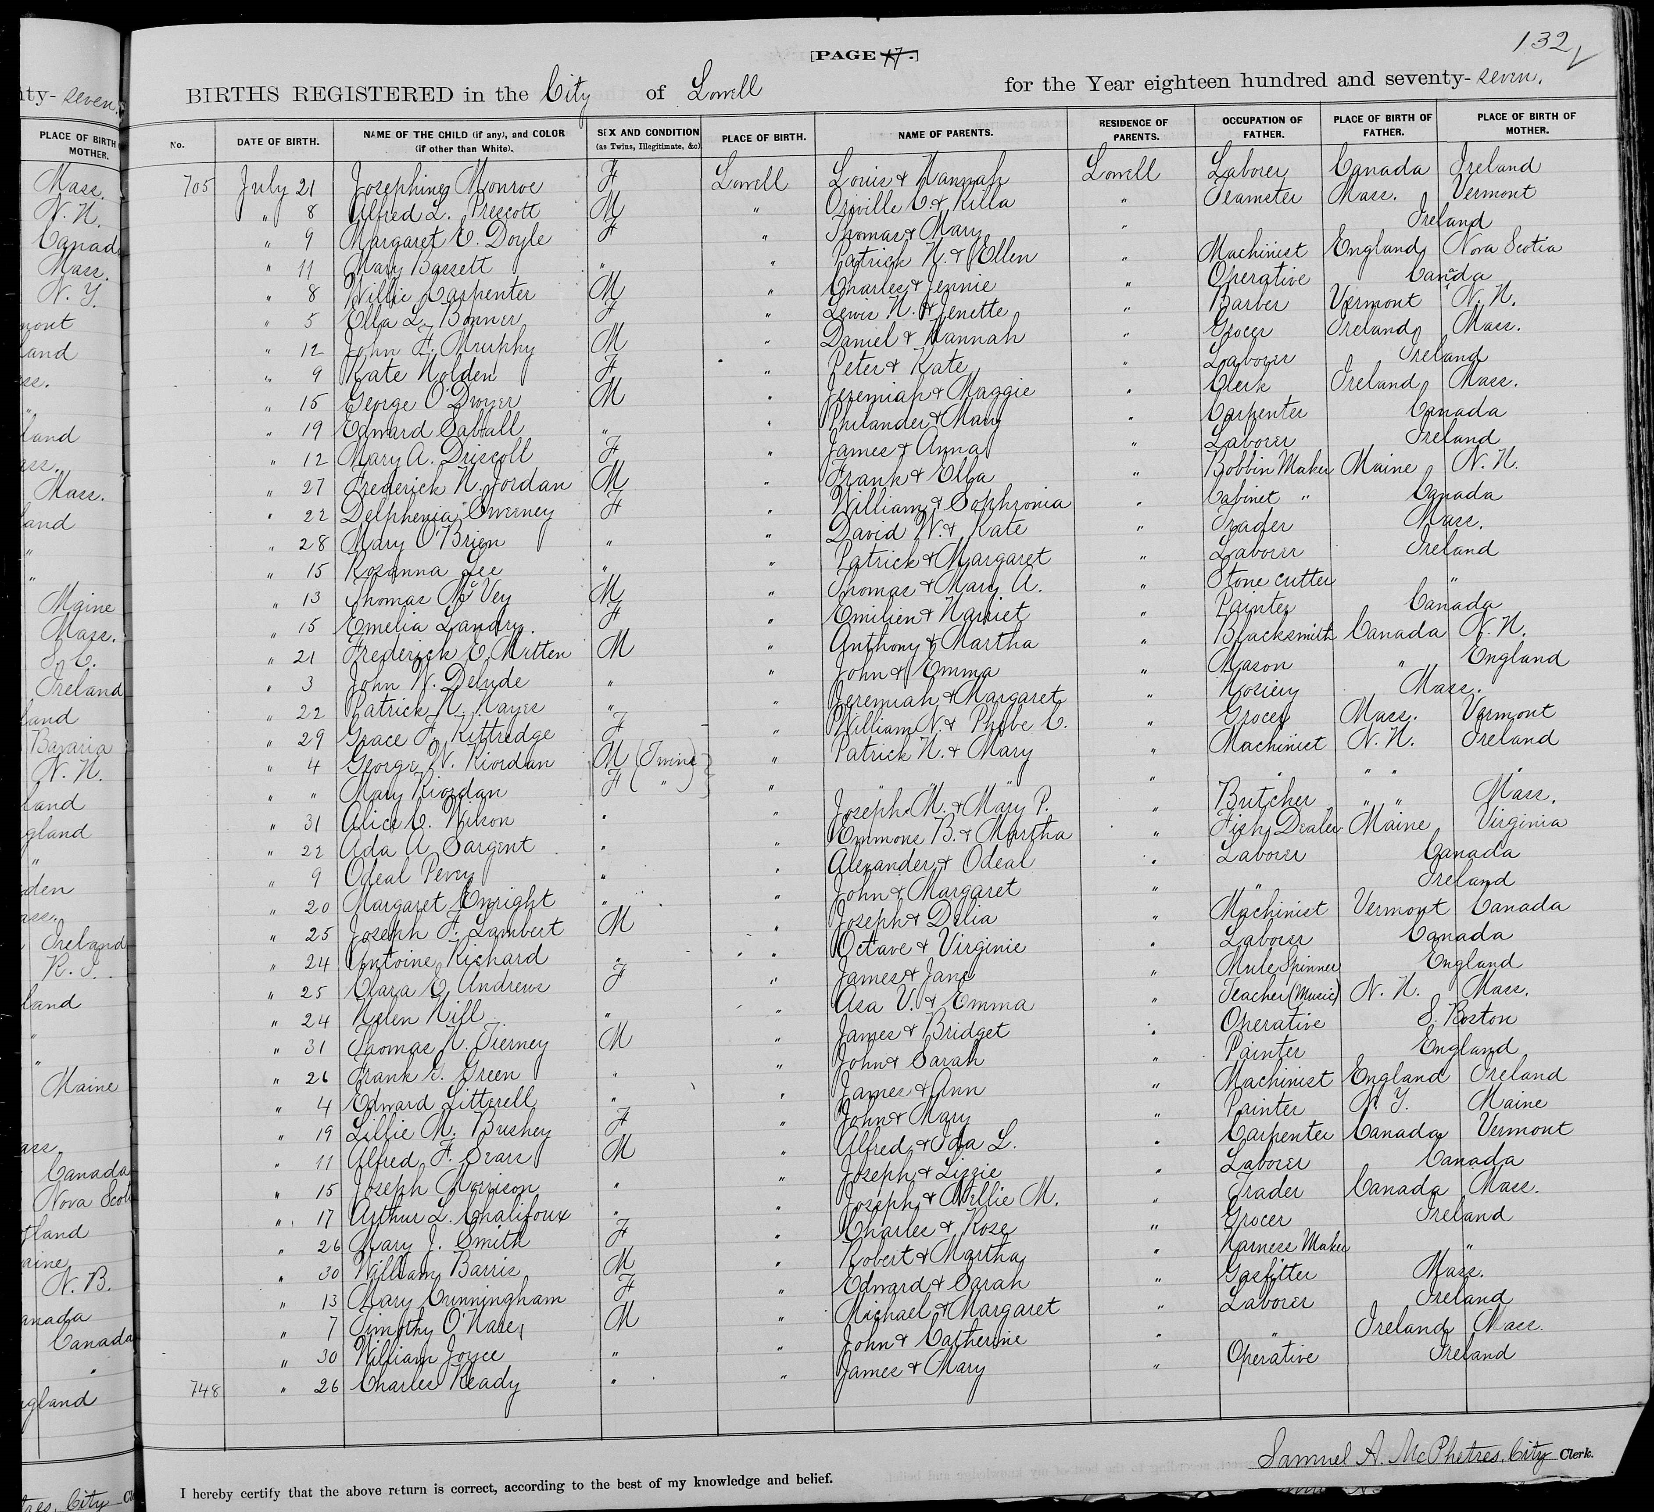 132
[PAGE 17.]
BIRTHS REGISTERED in the City of Lowell for the Year eighteen hundred and seventy-seven.
No. DATE OF BIRTH. NAME OF THE CHILD (if any), and COLOR (if other than White). SEX AND CONDITION (as Twins, Illegitimate, &c) PLACE OF BIRTH. NAME OF PARENTS. RESIDENCE OF PARENTS. OCCUPATION OF FATHER. PLACE OF BIRTH OF FATHER. PLACE OF BIRTH OF MOTHER.
705 July 21 Josephine Monroe F Lowell Louis & Hannah Lowell Laborer Canada Ireland
" 8 Alfred L. Prescott M " Orville C. & Rilla " Teamster Mass. Vermont
" 9 Margaret E. Doyle F " Thomas & Mary " Ireland
" 11 Mary Bassett " " Patrick H. & Ellen " Machinist England Nova Scotia
" 8 Willie Carpenter M " Charles & Jennie " Operative Canada
" 5 Ella L. Bonner F " Lewis H. & Jenette " Barber Vermont N. H.
" 12 John F. Murphy M " Daniel & Hannah " Grocer Ireland Mass.
" 9 Kate Holden F " Peter & Kate " Laborer Ireland
" 15 George O'Dwyer M " Jeremiah & Maggie " Clerk Ireland Mass.
" 19 Edward Saball " " Philander & Mary " Carpenter Canada
" 12 Mary A. Driscoll F " James & Anna " Laborer Ireland
" 27 Frederick H. Jordan M " Frank & Ella " Bobbin Maker Maine N. H.
" 22 Delphenia Sweeney F " William & Sophronia " Cabinet " Canada
" 28 Mary O'Brien " " David W. & Kate " Trader Mass.
" 15 Rosanna Lee " " Patrick & Margaret " Laborer Ireland
" 13 Thomas McVey M " Thomas & Mary A. " Stone cutter "
" 15 Emelia Landry. F " Emilien & Harriet " Painter Canada
" 21 Frederick E. Mitten M " Anthony & Martha " Blacksmith Canada N. H.
" 3 John W. Delude " " John & Emma " Mason " England
" 22 Patrick H. Hayes " " Jeremiah & Margaret " Hosiery Mass.
" 29 Grace F. Kittredge F " William N. & Phebe C. " Grocer Mass. Vermont
" 4 George W. Riordan M (Twins) " Patrick H. & Mary " Machinist N. H. Ireland
" " Mary Riordan F ( " ) " " " " " " " "
" 31 Alice C. Wilson " " Joseph M. & Mary P. " Butcher " " Mass.
" 22 Ada A. Sargent " " Emmons B. & Martha " Fish Dealer Maine Virginia
" 9 Odeal Pevey " " Alexander & Odeal " Laborer Canada
" 20 Margaret Enright " " John & Margaret " " Ireland
" 25 Joseph F. Lambert M " Joseph & Delia " Machinist Vermont Canada
" 24 Antoine Richard " " Octave & Virginie " Laborer Canada
" 25 Clara E. Andrews F " James & Jane " Mule Spinner England
" 24 Helen Hill " " Asa V. & Emma " Teacher (Music) N. H. Mass.
" 31 Thomas H. Tierney M " James & Bridget " Operative S. Boston
" 26 Frank E. Green " " John & Sarah " Painter England
" 4 Edward Litterell " " James & Ann " Machinist England Ireland
" 19 Lillie M. Bushey F " John & Mary " Painter N. Y. Maine
" 11 Alfred F. Sears M " Alfred & Ida L. " Carpenter Canada Vermont
" 15 Joseph Morrison " " Joseph & Lizzie " Laborer Canada
" 17 Arthur L. Chalifoux " " Joseph & Nellie M. " Trader Canada Mass.
" 26 Mary J. Smith F " Charles & Rose " Grocer Ireland
" 30 William Barris M " Robert & Martha " Harness Maker "
" 13 Mary Cunningham F " Edward & Sarah " Gasfitter Mass.
" 7 Timothy O'Hare M " Michael & Margaret " Laborer Ireland
" 30 William Joyce " " John & Catherine " " Ireland Mass.
748 " 26 Charles Ready " " James & Mary " Operative Ireland
I hereby certify that the above return is correct, according to the best of my knowledge and belief.
Samuel A. McPhetres, City Clerk.